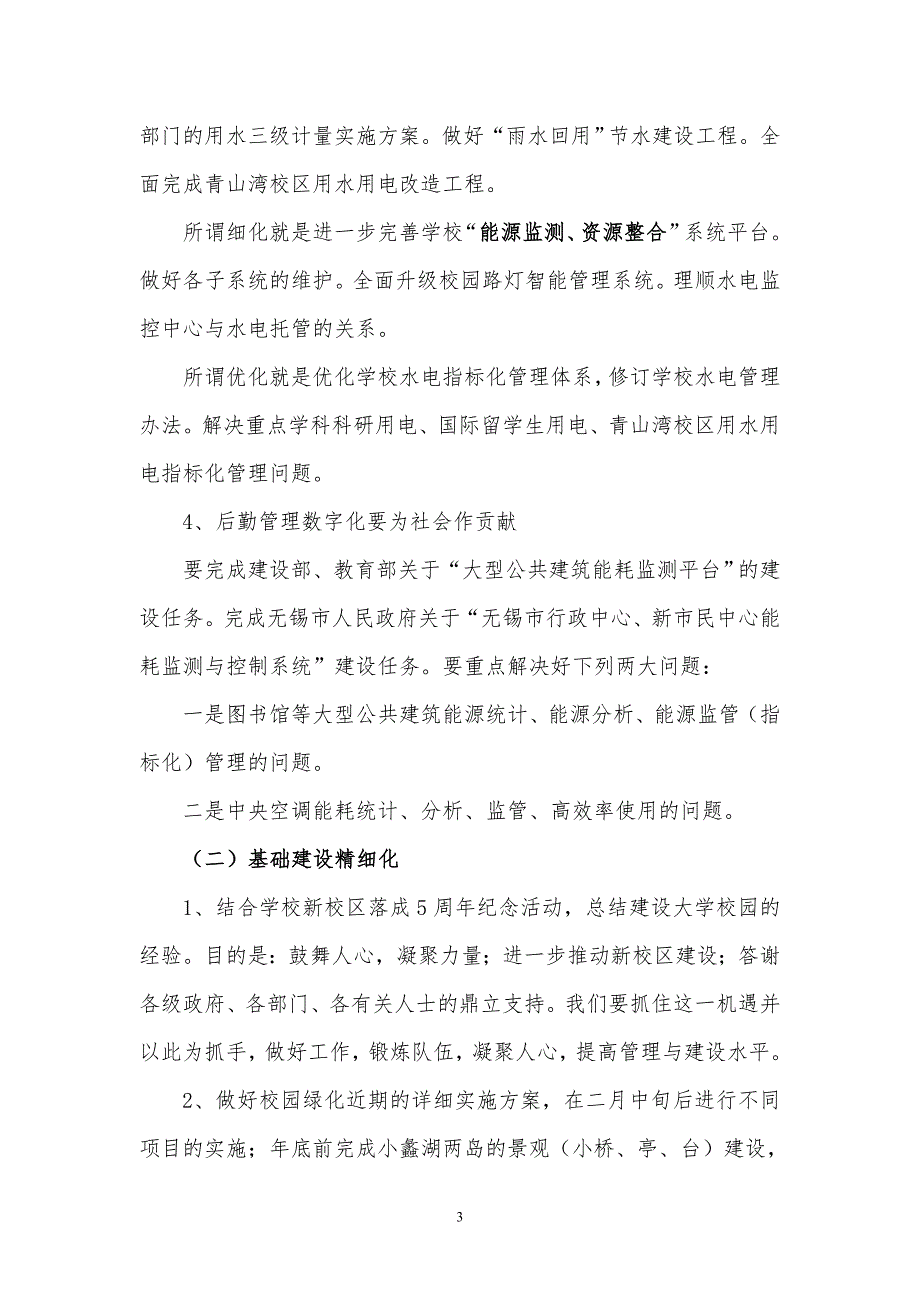 部门的用水三级计量实施方案。做好“雨水回用”节水建设工程。全
面完成青山湾校区用水用电改造工程。
所谓细化就是进一步完善学校“能源监测、资源整合”系统平台。
做好各子系统的维护。全面升级校园路灯智能管理系统。理顺水电监
控中心与水电托管的关系。
所谓优化就是优化学校水电指标化管理体系，修订学校水电管理
办法。解决重点学科科研用电、国际留学生用电、青山湾校区用水用
电指标化管理问题。
4、后勤管理数字化要为社会作贡献
要完成建设部、教育部关于“大型公共建筑能耗监测平台”的建
设任务。完成无锡市人民政府关于“无锡市行政中心、新市民中心能
耗监测与控制系统”建设任务。要重点解决好下列两大问题：
一是图书馆等大型公共建筑能源统计、能源分析、能源监管（指
标化）管理的问题。
二是中央空调能耗统计、分析、监管、高效率使用的问题。
（二）基础建设精细化
1、结合学校新校区落成 5 周年纪念活动，总结建设大学校园的
经验。目的是：鼓舞人心，凝聚力量；进一步推动新校区建设；答谢
各级政府、各部门、各有关人士的鼎立支持。我们要抓住这一机遇并
以此为抓手，做好工作，锻炼队伍，凝聚人心，提高管理与建设水平。
2、做好校园绿化近期的详细实施方案，在二月中旬后进行不同
项目的实施；年底前完成小蠡湖两岛的景观（小桥、亭、台）建设，
3